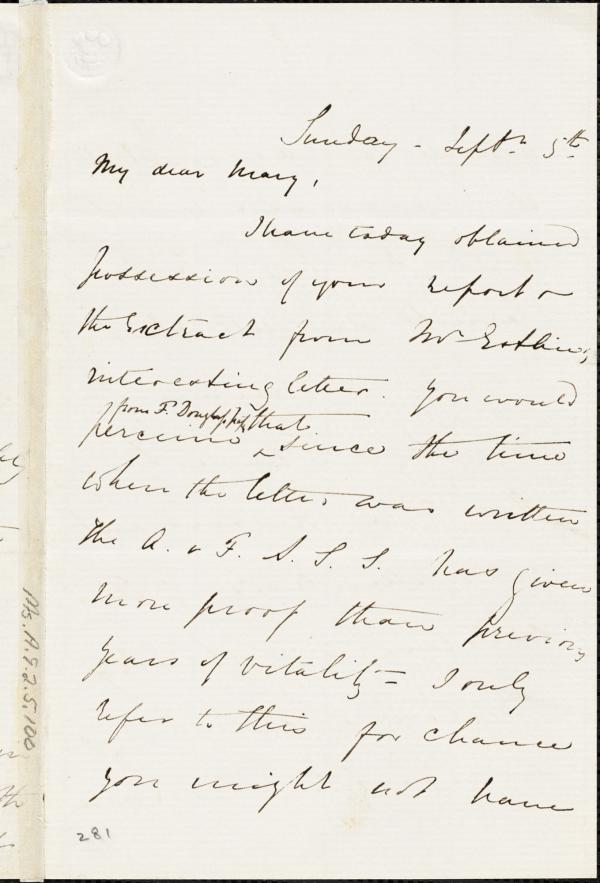 Sunday - Septr 5th
My dear Mary,
I have today obtained
possession of your report &
the extract from Mr Estlin's
interesting letter. You would
from F. Douglass' that
perceive ^ since the time
when the letter was written
the A. & F. A. S. S. has given
more proof than previous
years of vitality = I only
refer to this for chance
you might not have
281
Ms.A.9.2.5.100